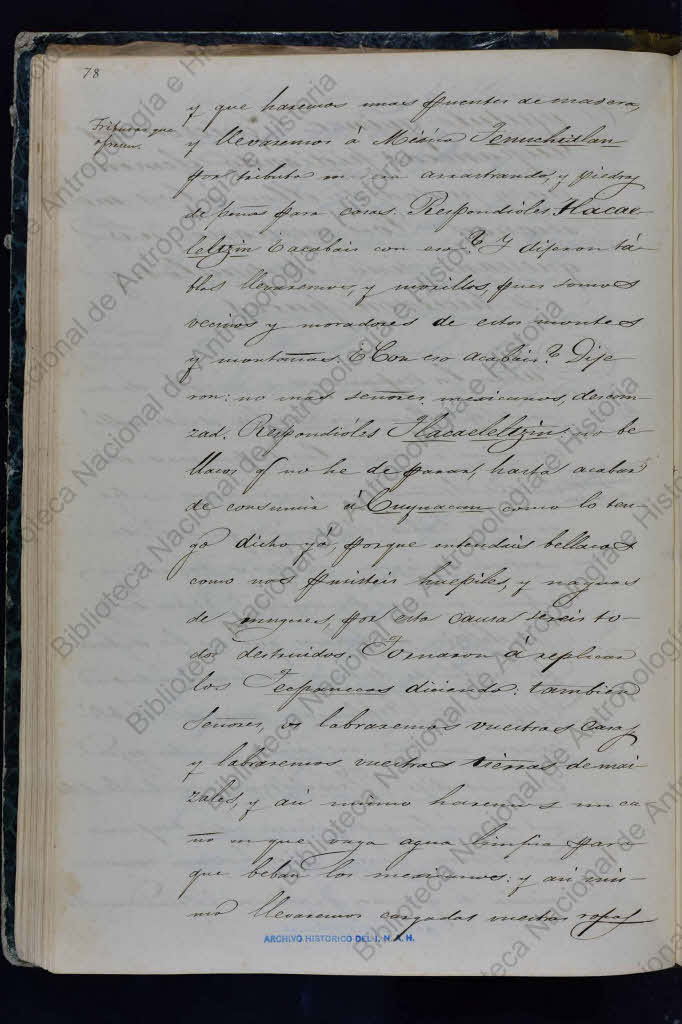 78
Tributos que
ofrecen.
y que haremos unas puentes de madera,
y llevaremos á México Tenuchtitlan
por tributo arrastrando, y piedra
de peñas para casas. Respondióles Tlacae-
leltzin ¿acabais con eso? Y dijeron tá-
blas llevaremos, y morillos, pues somos
vecinos y moradores de estos montes
y montañas. ¿Con eso acabais? Dije
ron: no mas señores mexicanos, descan-
zad. Respondióles Tlacaeleltzin no be-
llacos q no he de parar, hasta acabar
de consumir á Cuyuacan como lo ten-
go dicho yá, porque entendáis bellacos
como nos pusisteis huepiles, y naguas
de mugeres, por esta causa sereis to-
dos destruidos. Tornaron á replicar
los Tecpanecas diciendo: tambien
Señores, os labraremos vuestras casas
y labraremos vuestras tierras de mai-
zales, y así mismo haremos un ca-
ño en que vaya agua limpia para
que beban los mexicanos: y asi mis-
mo llevaremos cargadas vuestras ropas
ARCHIVO HISTORICO DEL I. N. A. H.
Biblioteca Nacional de Antropología e Historia